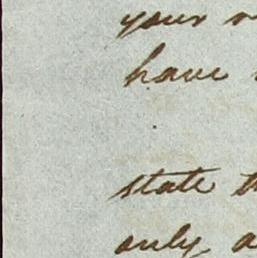 your
have
state
only a